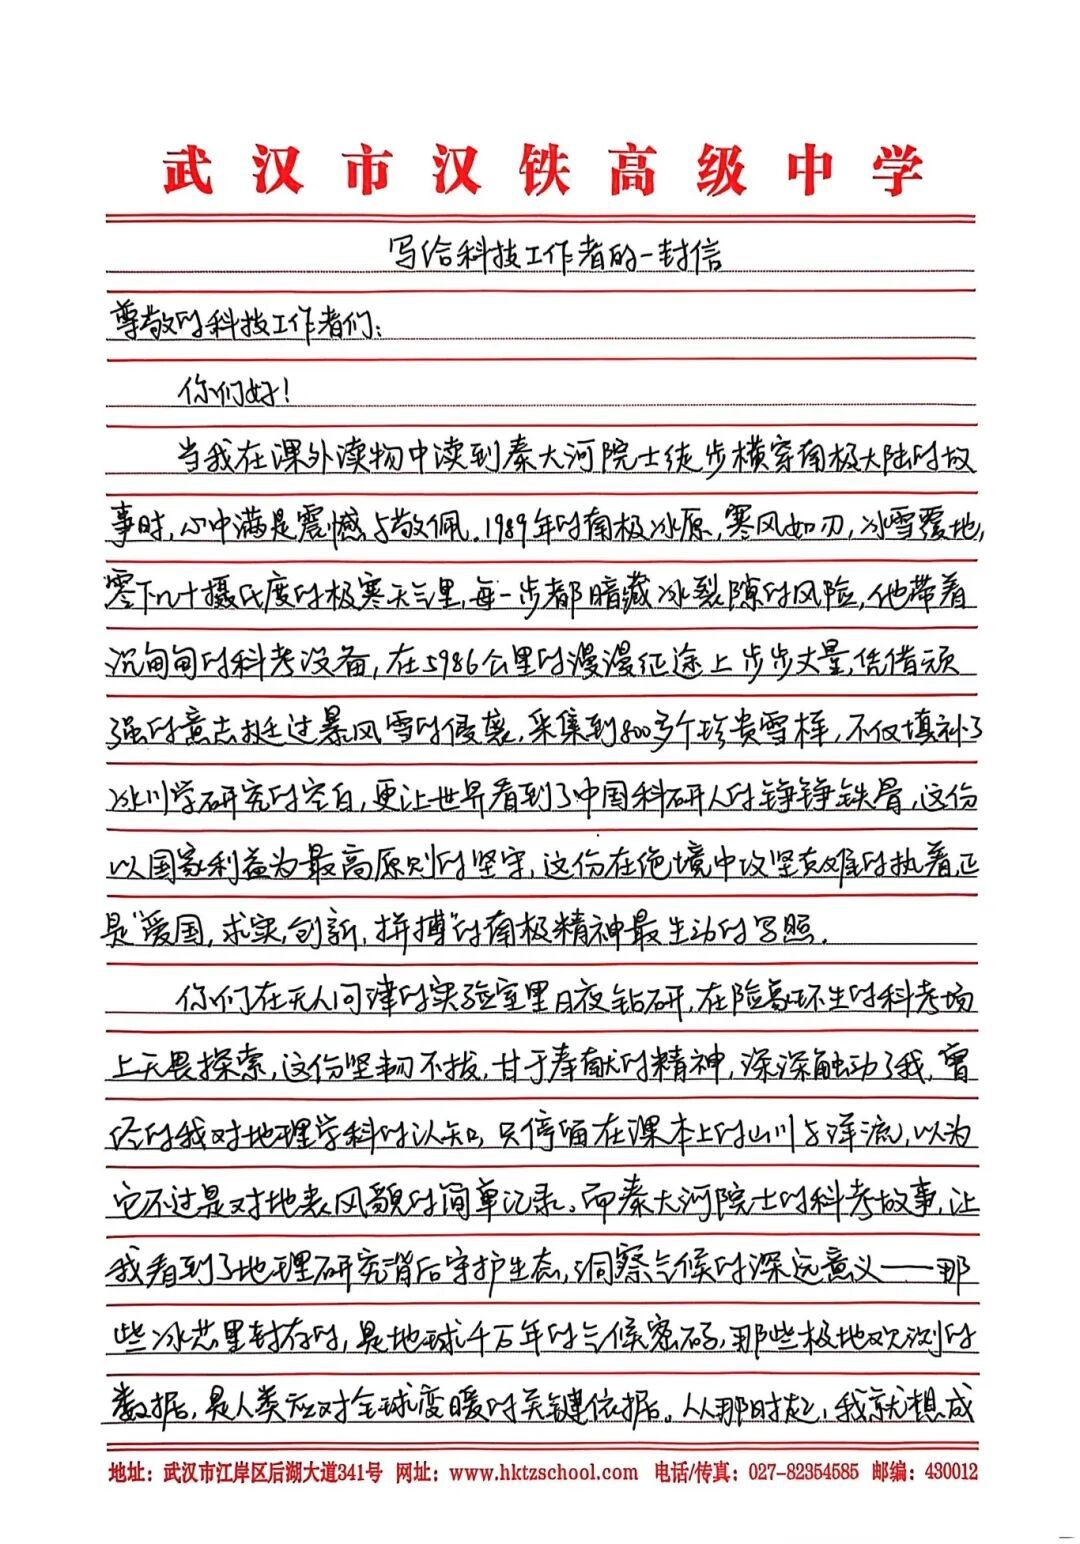 武汉市汉铁高级中学
写给科技工作者的一封信
尊敬的科技工作者们：
你们好！
当我在课外读物中读到秦大河院士徒步横穿南极大陆的故
事时，心中满是震憾与敬佩。1989年的南极冰原，寒风如刀，冰雪覆地，
零下几十摄氏度的极寒天气里，每一步都暗藏冰裂隙的风险，他带着
沉甸甸的科考设备，在5986公里的漫漫征途上步步丈量，凭借顽
强的意志挺过暴风雪的侵袭，采集到800多个珍贵雪样，不仅填补了
冰川学研究的空白，更让世界看到了中国科研人的铮铮铁骨，这份
以国家利益为最高原则的坚守，这份在绝境中攻坚克难的执着，正
是“爱国，求实，创新，拼搏”的南极精神最生动的写照。
你们在无人问津的实验室里日夜钻研，在险象环生的科考场
上无畏探索，这份坚韧不拔，甘于奉献的精神，深深触动了我，曾
经的我对地理学科的认知，只停留在课本上的山川与洋流，以为
它不过是对地表风貌的简单记录。而秦大河院士的科考故事，让
我看到了地理研究背后守护生态，洞察气候的深远意义——那
些冰芯里封存的，是地球千万年的气候密码，那些极地观测的
数据，是人类应对全球变暖的关键依据。从那时起，我就想成
地址：武汉市江岸区后湖大道341号 网址：www.hktzschool.com 电话/传真：027-82354585 邮编：430012